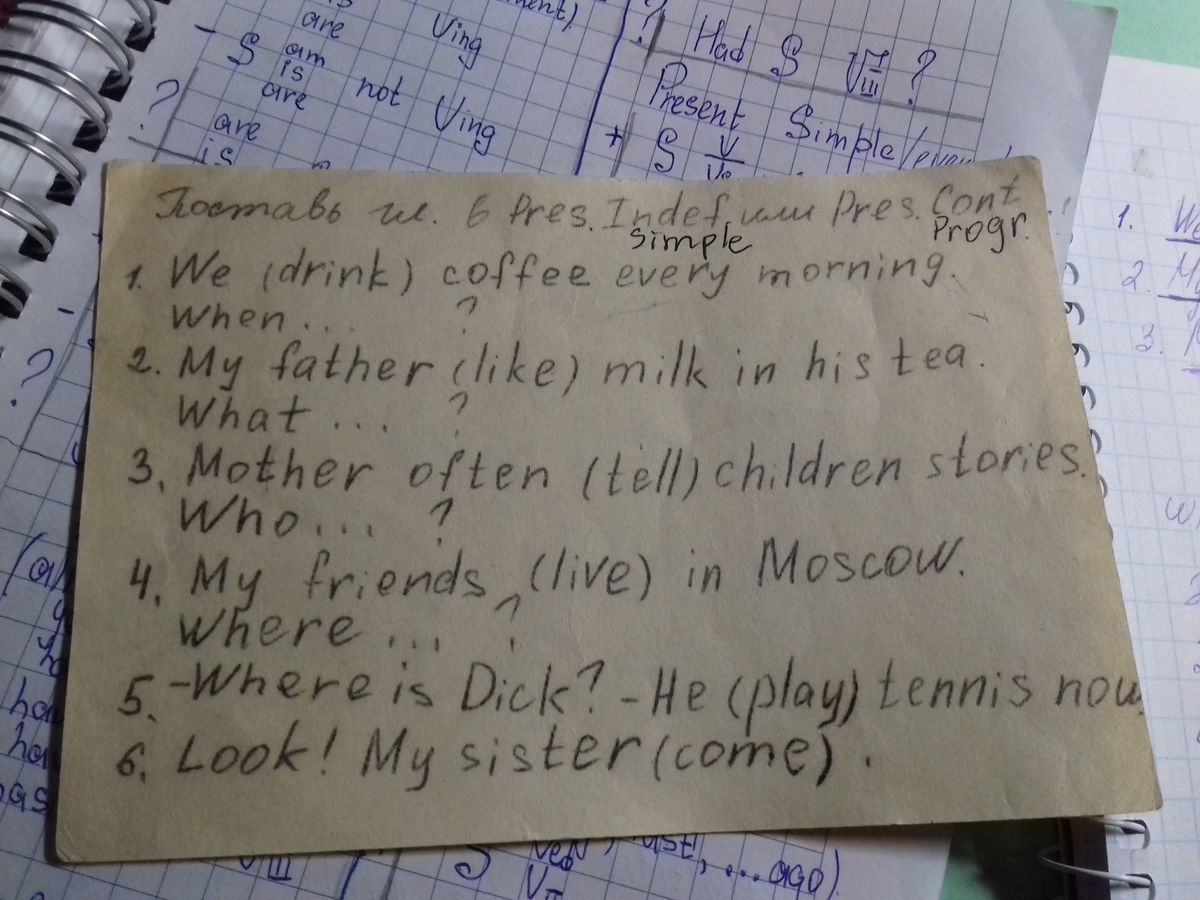 are Ving
- S am is are not Ving
?
are
is
? Had S V III ?
Present Simple
+ S V
Поставь гл. в Pres. Indef. или Pres. Cont
Simple Progr.
1. We (drink) coffee every morning.
When ... ?
2. My father (like) milk in his tea.
What ... ?
3. Mother often (tell) children stories.
Who ... ?
4. My friends (live) in Moscow.
Where ... ?
5. - Where is Dick? - He (play) tennis now.
6. Look! My sister (come).
1. We
2.
3.
?
V III
S
... ago)